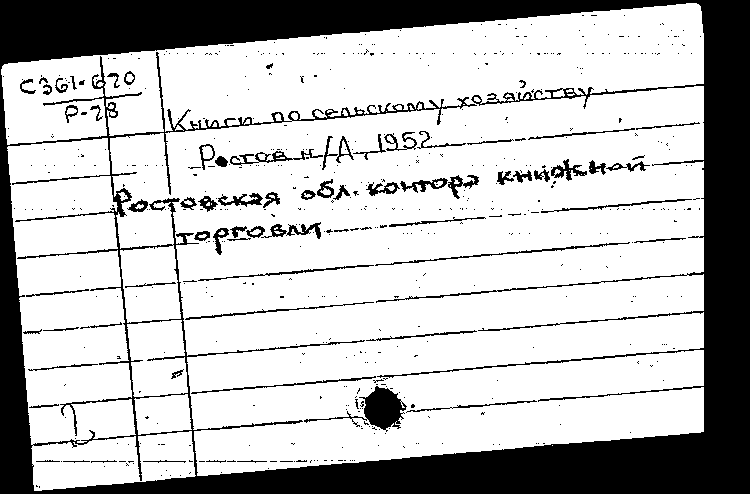 С361-620
Р-28
Книги по сельскому хозяйству
Ростов н/Д, 1952
Ростовская обл. контора книжной
торговли
2